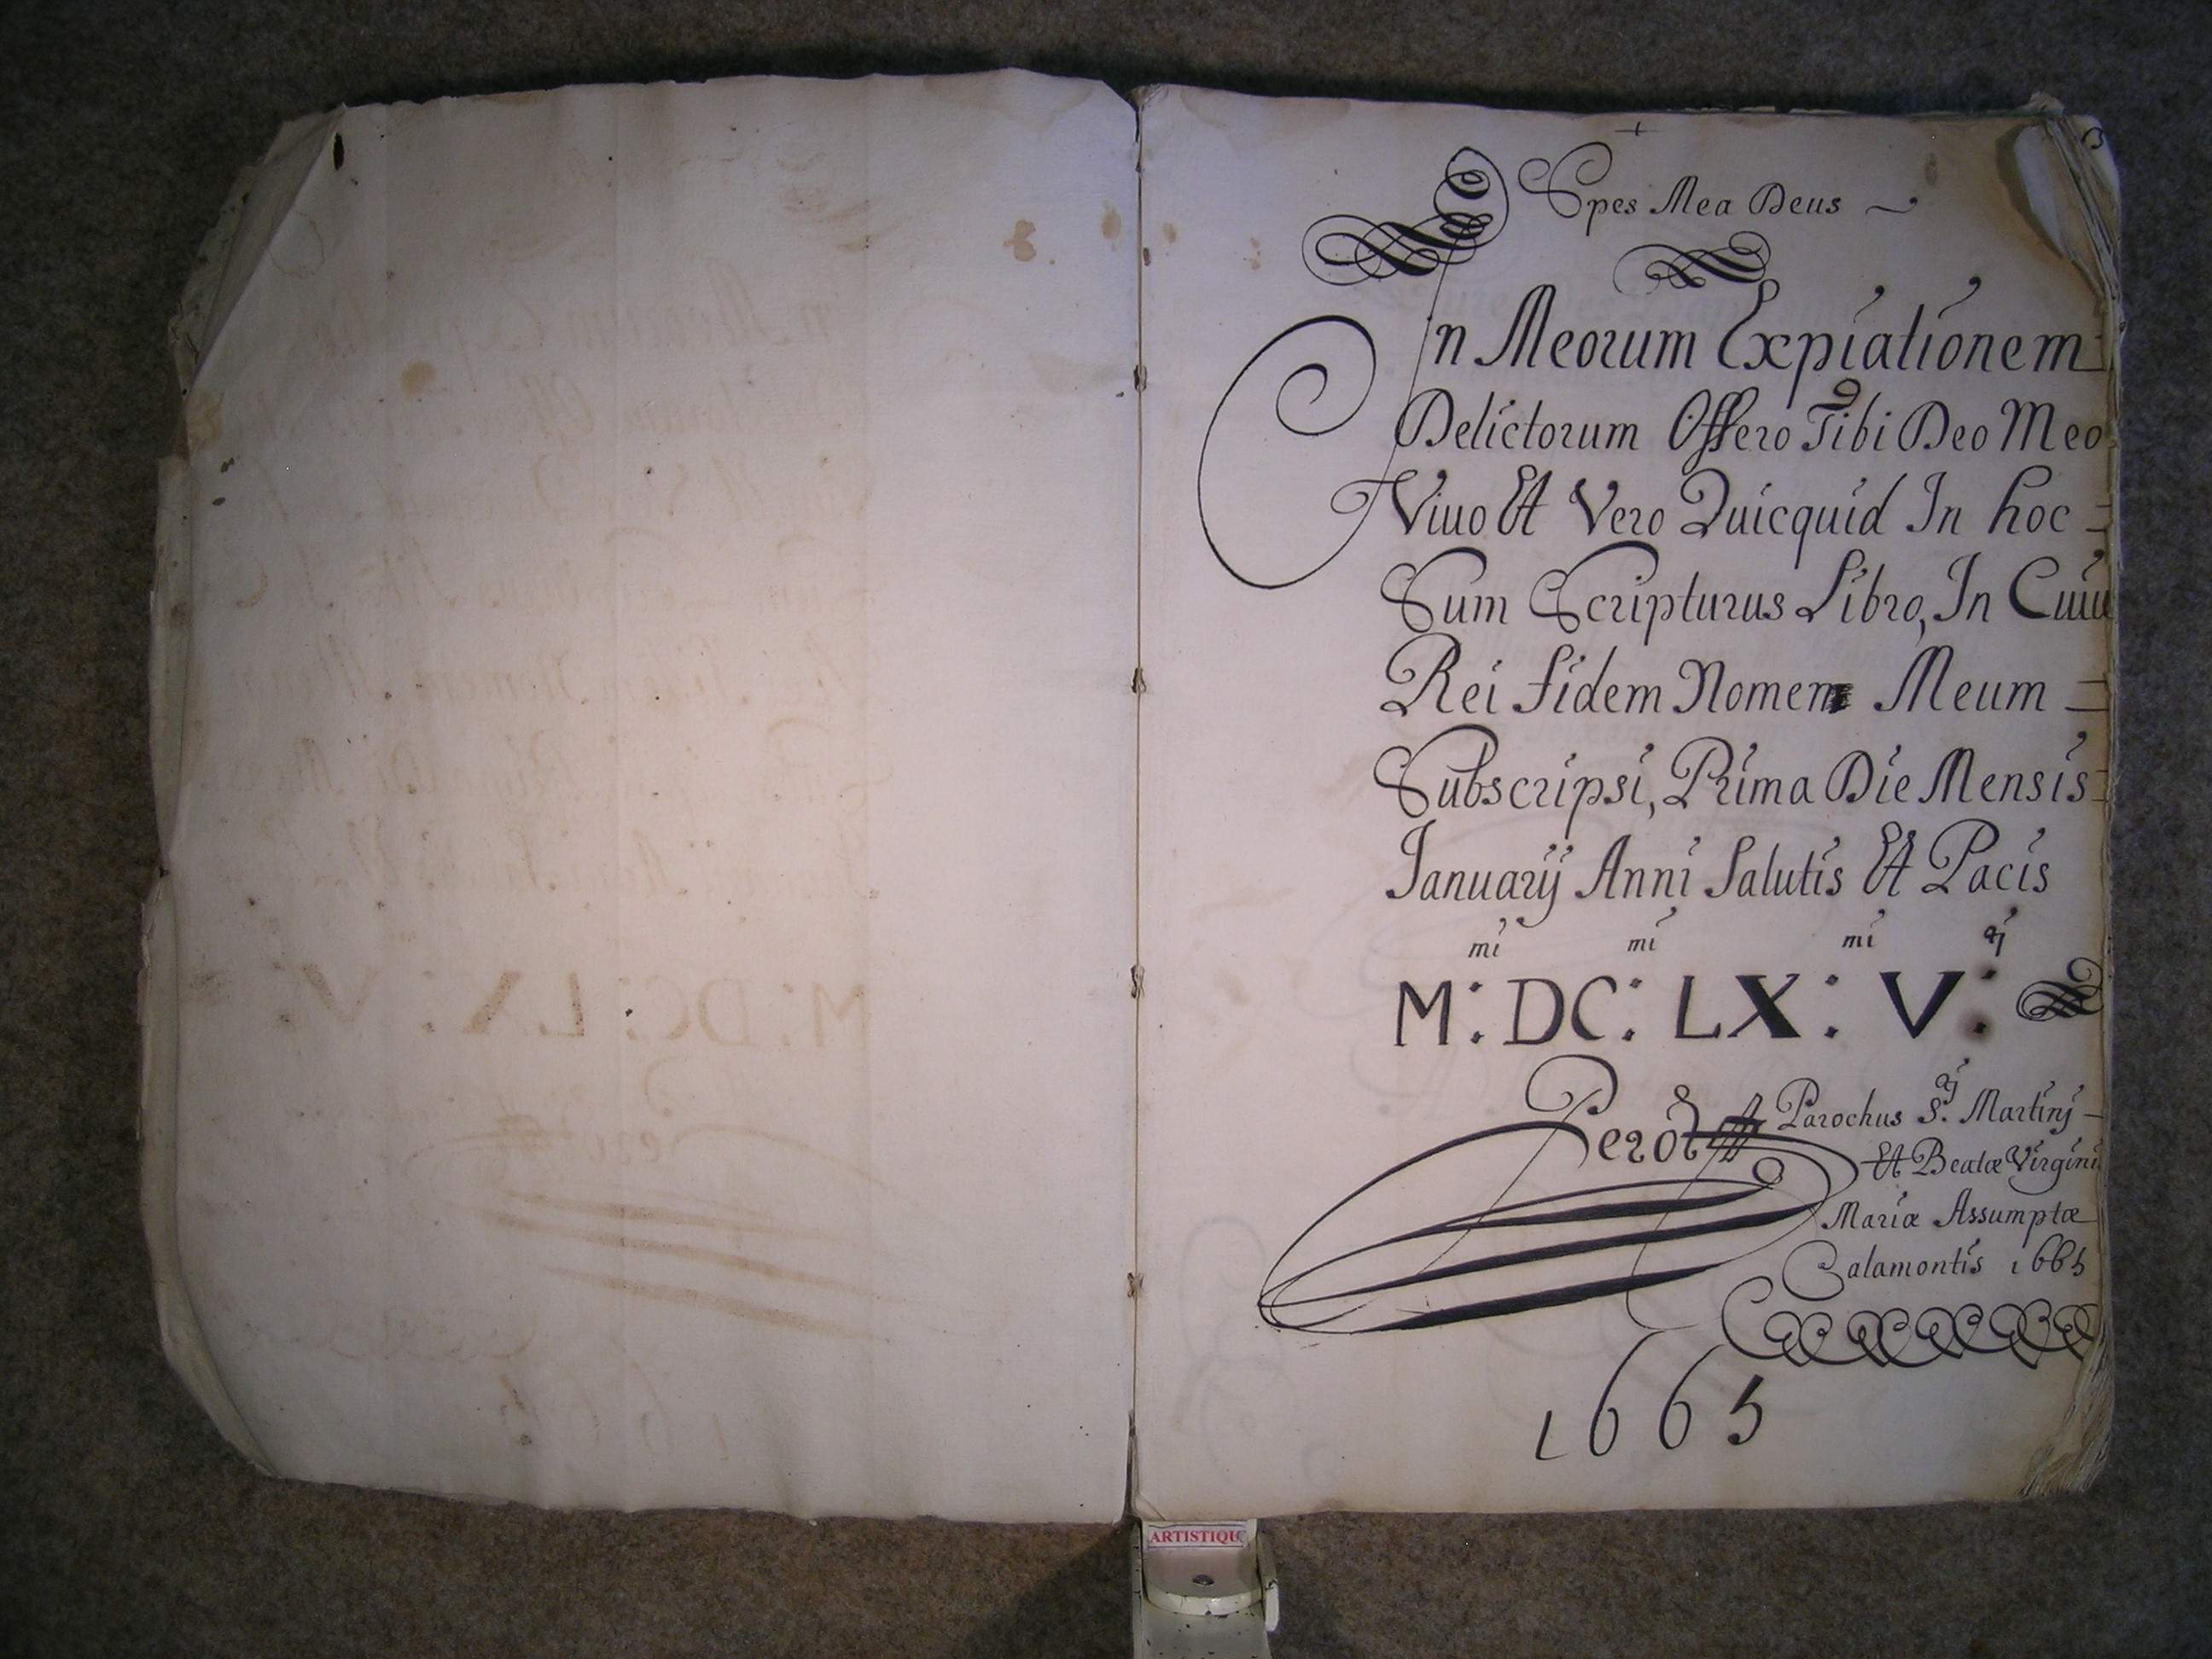 Spes Mea Deus
In Meorum Expiationem
Delictorum Offero Tibi Deo Meo
Viuo Et Vero Quicquid In hoc
Sum Scripturus Libro, In Cuiu
Rei fidem Nomen Meum
Subscripsi, Prima Die Mensis
Januarij Anni Salutis Et Pacis
mi mi mi
M: DC: LX: V:
Perot Parochus S. Martinj
Et Beatæ Virgini
Mariæ Assumptæ
Calamontis 1665
1665
ARTISTIQU